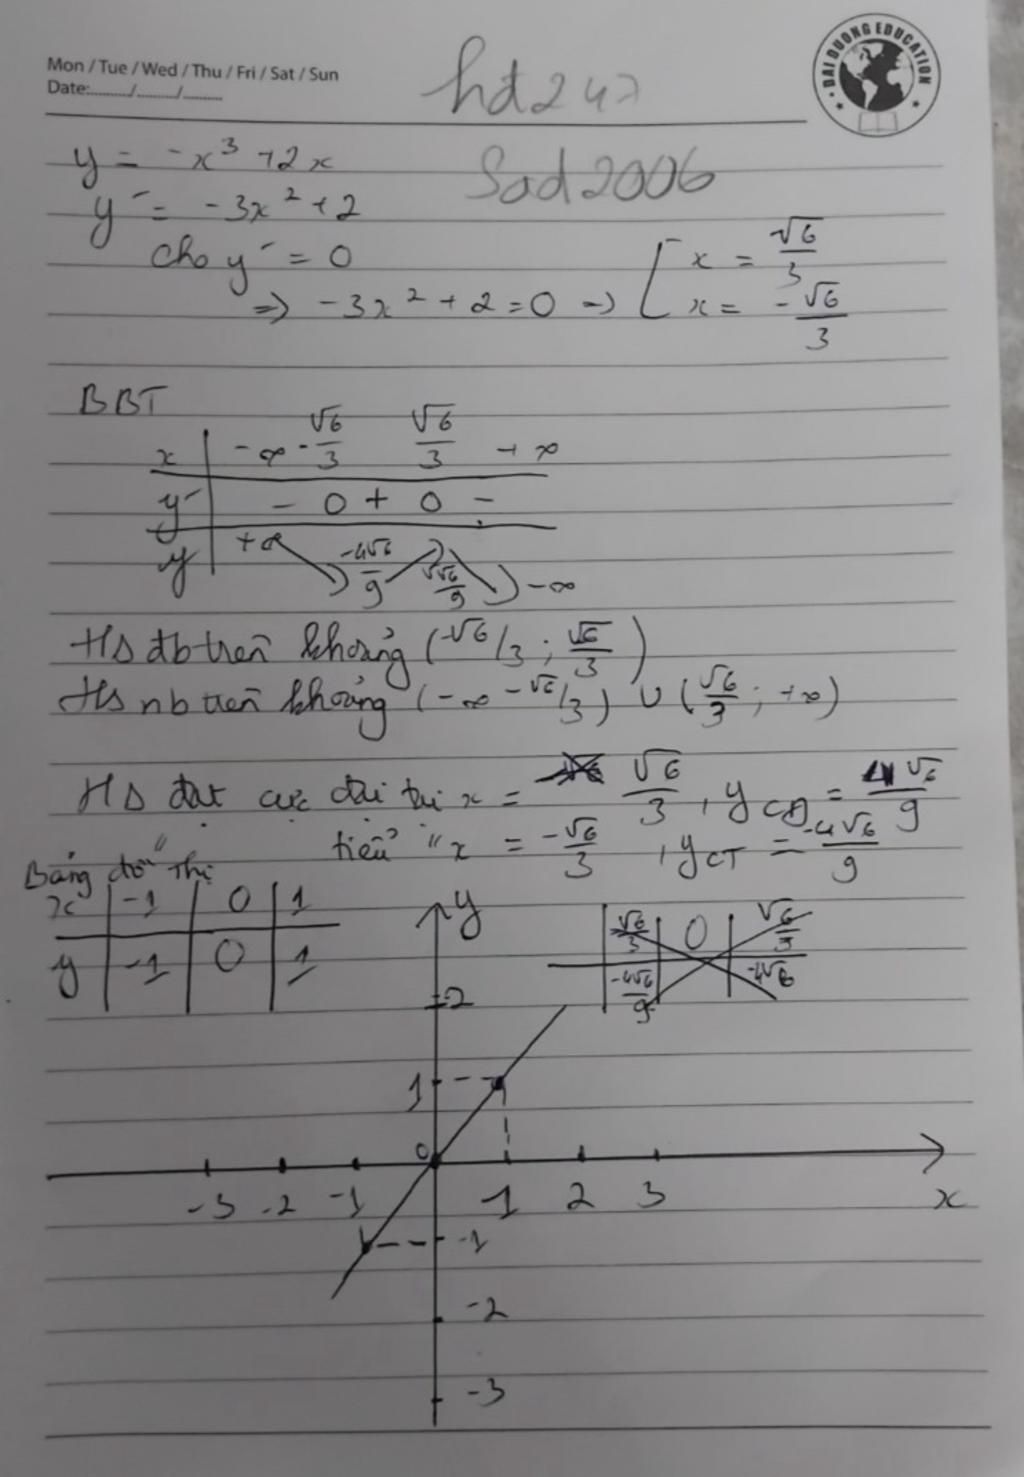 Mon / Tue / Wed / Thu / Fri / Sat / Sun
Date:........./........./.........
hd247
Sad2006
DAI DUONG EDUCATION
y = -x³ + 2x
y' = -3x² + 2
cho y' = 0
=> -3x² + 2 = 0 => [ x = √6/3
x = -√6/3
BBT
x | -∞ -√6/3 √6/3 +∞
y' | - 0 + 0 -
y | +∞ -4√6/9 4√6/9 -∞
HS đb trên khoảng (-√6/3 ; √6/3)
HS nb trên khoảng (-∞ -√6/3) ∪ (√6/3 ; +∞)
HS đạt cực đại tại x = √6/3 , yCĐ = 4√6/9
tiểu " x = -√6/3 , yCT = -4√6/9
Bảng đồ thị
x | -1 | 0 | 1
y | -1 | 0 | 1
√6/3 | 0 | √6/3
-4√6/9 | | -4√6
y
2
1
0
-3 -2 -1 1 2 3 x
-1
-2
-3